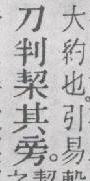 大約也。引易
刀判栔其旁。